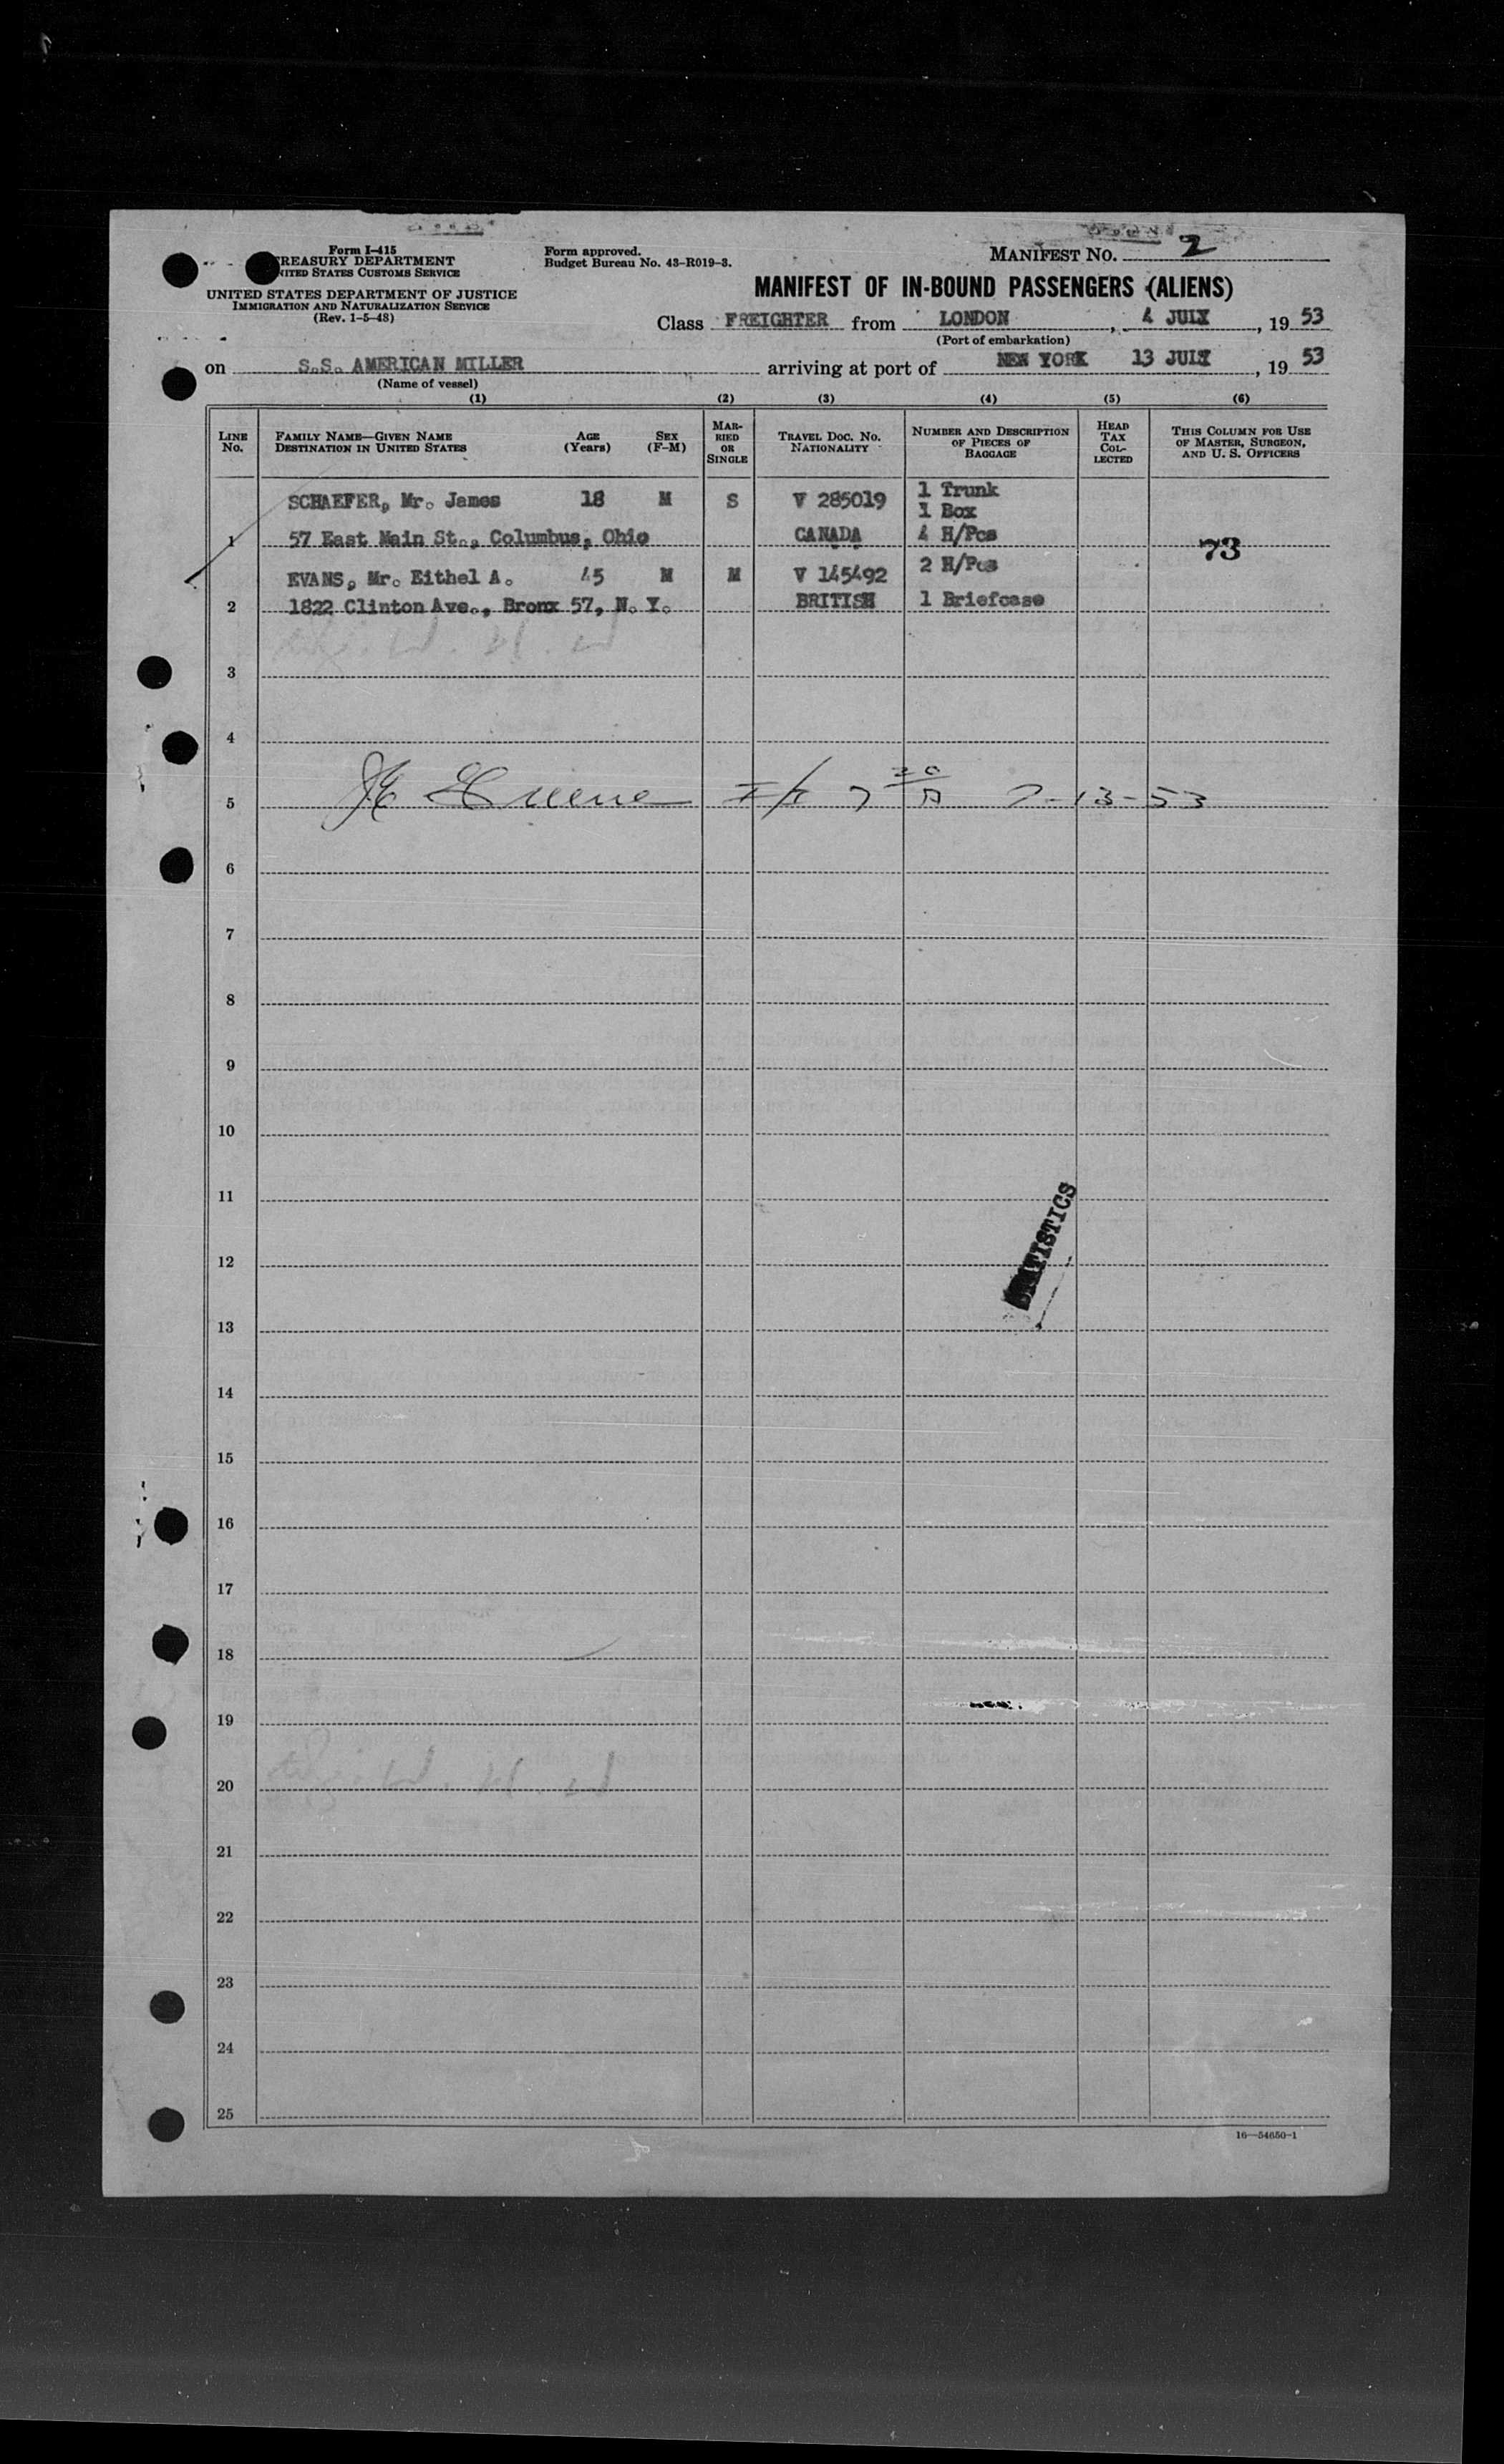 Form I-415
TREASURY DEPARTMENT
UNITED STATES CUSTOMS SERVICE
UNITED STATES DEPARTMENT OF JUSTICE
IMMIGRATION AND NATURALIZATION SERVICE
(Rev. 1-5-48)
Form approved.
Budget Bureau No. 43-R019-3.
MANIFEST NO. 2
MANIFEST OF IN-BOUND PASSENGERS (ALIENS)
Class FREIGHTER from LONDON, 4 JULY, 19 53
(Port of embarkation)
on S.S. AMERICAN MILLER arriving at port of NEW YORK 13 JULY, 19 53
(Name of vessel)
(1) (2) (3) (4) (5) (6)
LINE NO. FAMILY NAME—GIVEN NAME DESTINATION IN UNITED STATES AGE (Years) SEX (F-M) MARRIED OR SINGLE TRAVEL DOC. NO. NATIONALITY NUMBER AND DESCRIPTION OF PIECES OF BAGGAGE HEAD TAX COLLECTED THIS COLUMN FOR USE OF MASTER, SURGEON, AND U. S. OFFICERS
SCHAEFER, Mr. James 18 M S V 285019 1 Trunk
1 Box
1 57 East Main St., Columbus, Ohio CANADA 4 H/Pcs 73
EVANS, Mr. Eithel A. 45 M M V 145492 2 H/Pcs
2 1822 Clinton Ave., Bronx 57, N. Y. BRITISH 1 Briefcase
3
4
5 7-13-53
6
7
8
9
10
11
12
STATISTICS
13
14
15
16
17
18
19
20
21
22
23
24
25
16—54650-1